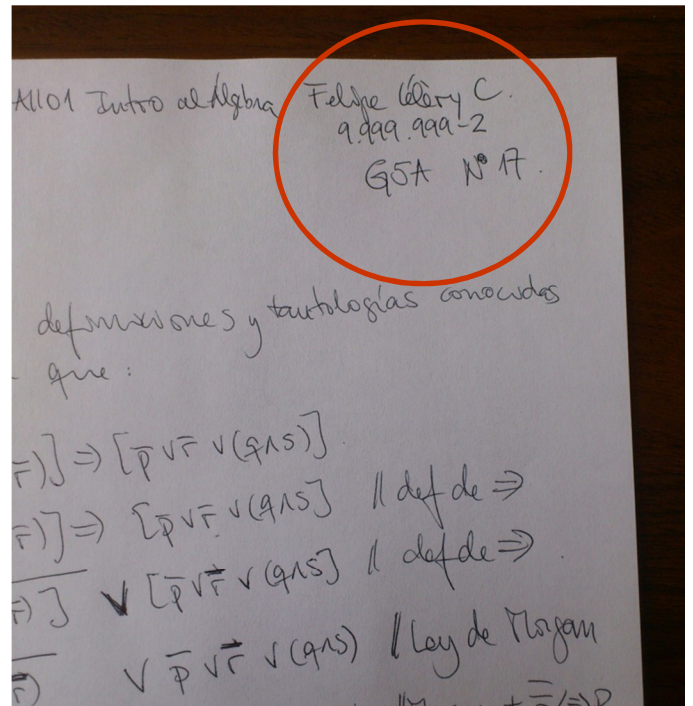 A1101 Intro al Álgebra Felipe Célèry C.
9.999.999-2
G5A Nº 17.
definiciones y tautologías conocidas
que:
r̅)] ⇒ [p̅ ∨ r̅ ∨ (q∧s)]
r̅)] ⇒ [p̅ ∨ r̅ ∨ (q∧s] // def de ⇒
r̅)] ∨ [p̅ ∨ r̅ ∨ (q∧s] // def de ⇒
r̅) ∨ p̅ ∨ r̅ ∨ (q∧s) // Ley de Morgan